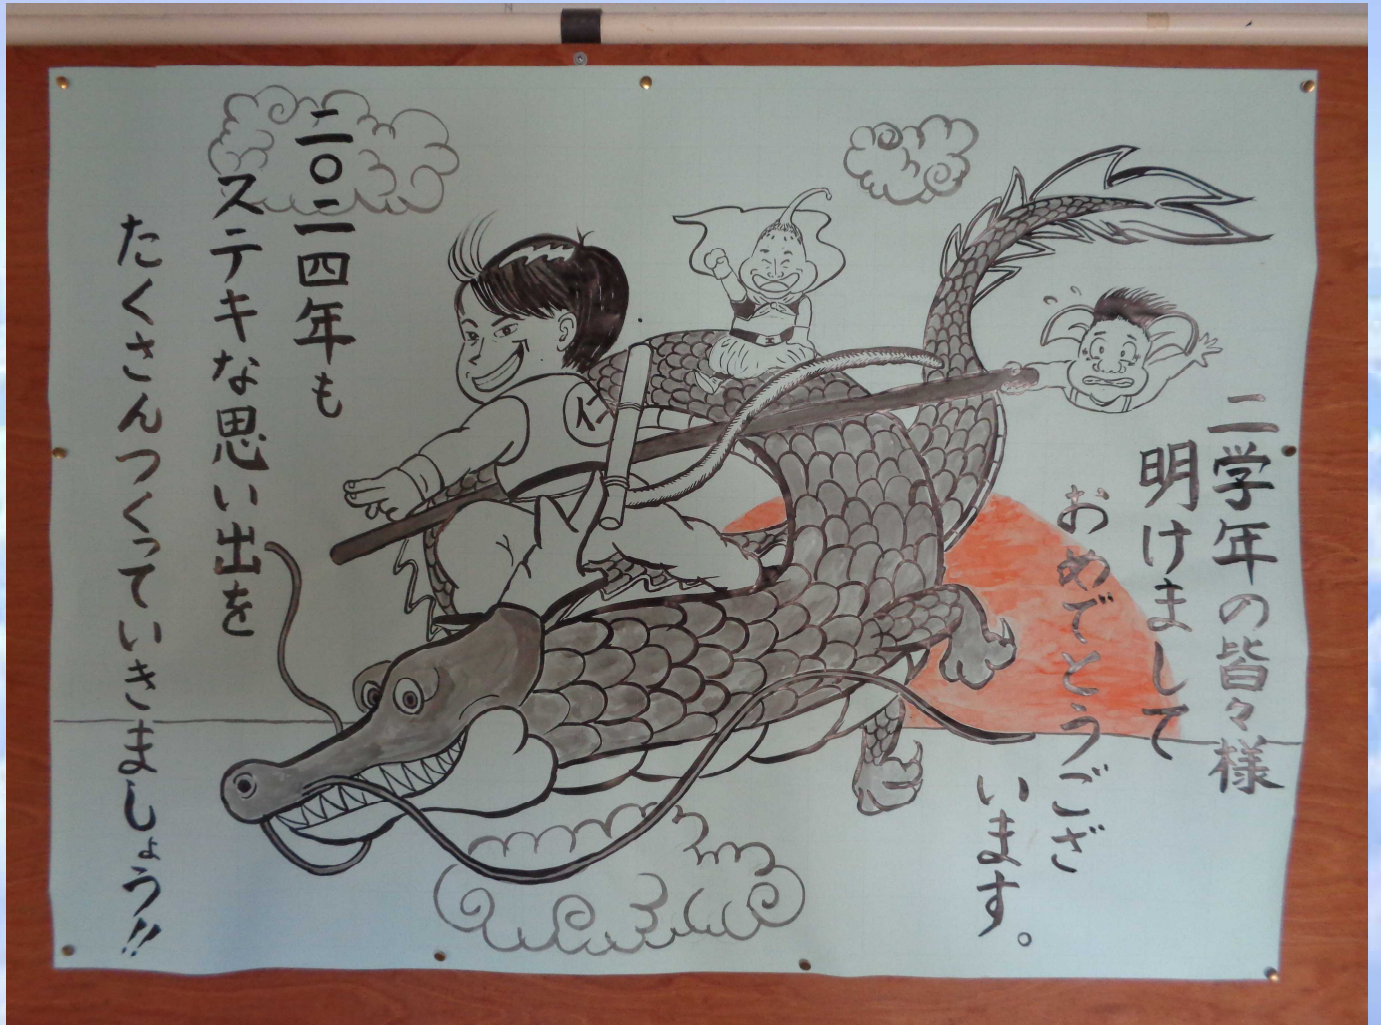 二学年の皆々様
明けまして
おめでとうござ
います。
二〇二四年も
ステキな思い出を
たくさんつくっていきましょう!!
仁